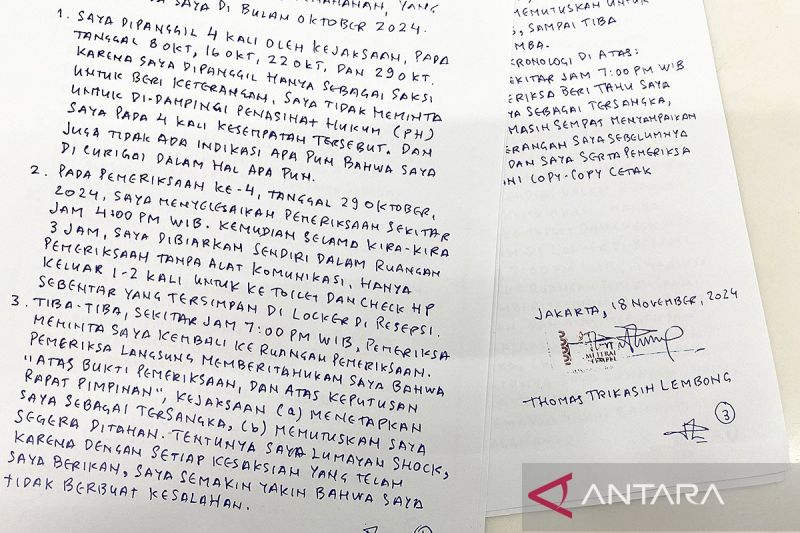 SAYA DI BULAN OKTOBER 2024.
1. SAYA DIPANGGIL 4 KALI OLEH KEJAKSAAN, PADA
TANGGAL 8 OKT, 16 OKT, 22 OKT, DAN 29 OKT.
KARENA SAYA DIPANGGIL HANYA SEBAGAI SAKSI
UNTUK BERI KETERANGAN, SAYA TIDAK MEMINTA
UNTUK DI-DAMPINGI PENASIHAT HUKUM (PH)
SAYA PADA 4 KALI KESEMPATAN TERSEBUT. DAN
JUGA TIDAK ADA INDIKASI APA PUN BAHWA SAYA
DI CURIGAI DALAM HAL APA PUN.
2. PADA PEMERIKSAAN KE-4, TANGGAL 29 OKTOBER,
2024, SAYA MENYELESAIKAN PEMERIKSAAN SEKITAR
JAM 4:00 PM WIB. KEMUDIAN SELAMA KIRA-KIRA
3 JAM, SAYA DIBIARKAN SENDIRI DALAM RUANGAN
PEMERIKSAAN TANPA ALAT KOMUNIKASI, HANYA
KELUAR 1-2 KALI UNTUK KE TOILET DAN CHECK HP
SEBENTAR YANG TERSIMPAN DI LOCKER DI RESEPSI.
3. TIBA-TIBA, SEKITAR JAM 7:00 PM WIB, PEMERIKSA
MEMINTA SAYA KEMBALI KE RUANGAN PEMERIKSAAN.
PEMERIKSA LANGSUNG MEMBERITAHUKAN SAYA BAHWA
"ATAS BUKTI PEMERIKSAAN, DAN ATAS KEPUTUSAN
RAPAT PIMPINAN", KEJAKSAAN (a) MENETAPKAN
SAYA SEBAGAI TERSANGKA, (b) MEMUTUSKAN SAYA
SEGERA DITAHAN. TENTUNYA SAYA LUMAYAN SHOCK,
KARENA DENGAN SETIAP KESAKSIAN YANG TELAH
SAYA BERIKAN, SAYA SEMAKIN YAKIN BAHWA SAYA
TIDAK BERBUAT KESALAHAN.
MEMUTUSKAN UNTUK
, SAMPAI TIBA
MBA.
KRONOLOGI DI ATAS:
SEKITAR JAM 7:00 PM WIB
ERIKSA BERI TAHU SAYA
YA SEBAGAI TERSANGKA,
MASIH SEMPAT MENYAMPAIKAN
ERANGAN SAYA SEBELUMNYA
DAN SAYA SERTA PEMERIKSA
INI COPY-COPY CETAK
JAKARTA, 18 NOVEMBER, 2024
THOMAS TRIKASIH LEMBONG
3
ANTARA